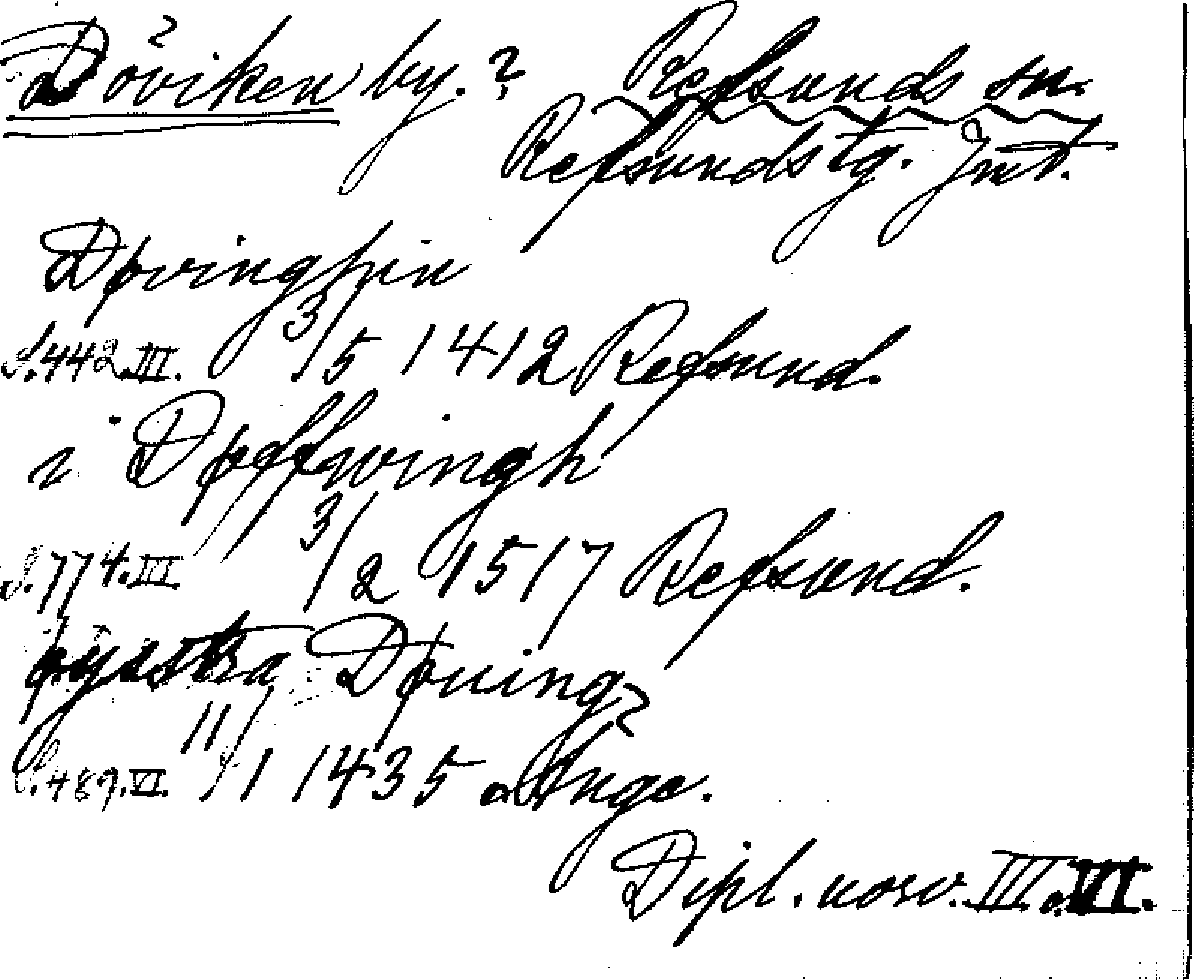 Döviken by.? Refsunds sn.
Refsunds tg. Jmt.
Døvinghin
S.442.III. 3/5 1412 Refsund.
i Døffwingh
S.774.III 3/2 1517 Refsund.
øystra Døuing?
S.489.VI. 11/1 1435 Ånge.
Dipl. norv. III. o. VI.